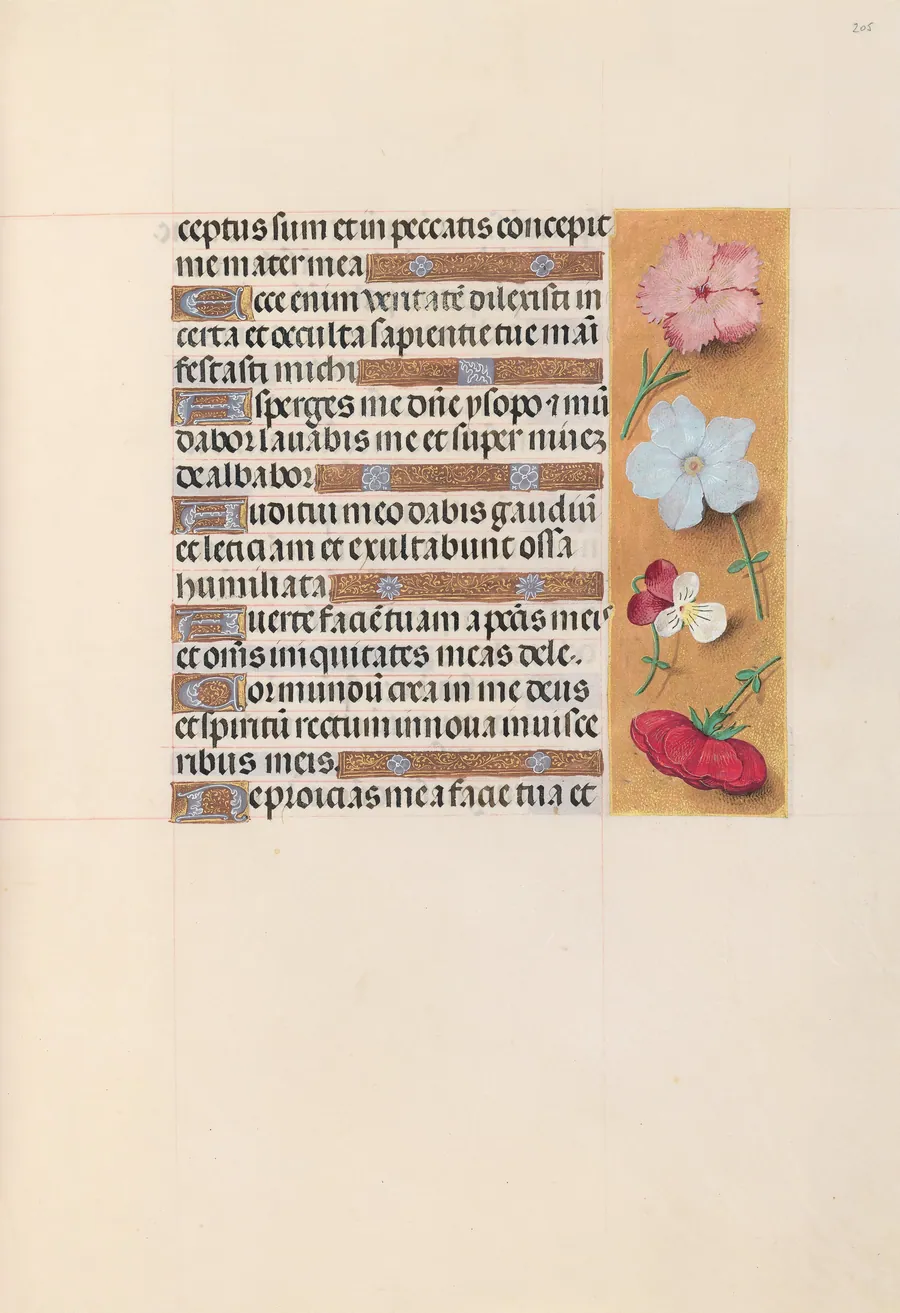 205
ceptus sum et in peccatis concepit
me mater mea
Ecce enim veritatē dilexisti in
certa et occulta sapientie tue maī
festasti michi
Asperges me dn̄e ysopo ⁊ mū
dabor lavabis me et super nivez
dealbabor
Auditui meo dabis gaudiū
et leticiam et exultabunt ossa
humiliata
Averte faciē tuam a pctīs meis
et om̄s iniquitates meas dele.
Cor mundū crea in me deus
et spiritū rectum innova in visce
ribus meis.
Ne proicias me a facie tua et